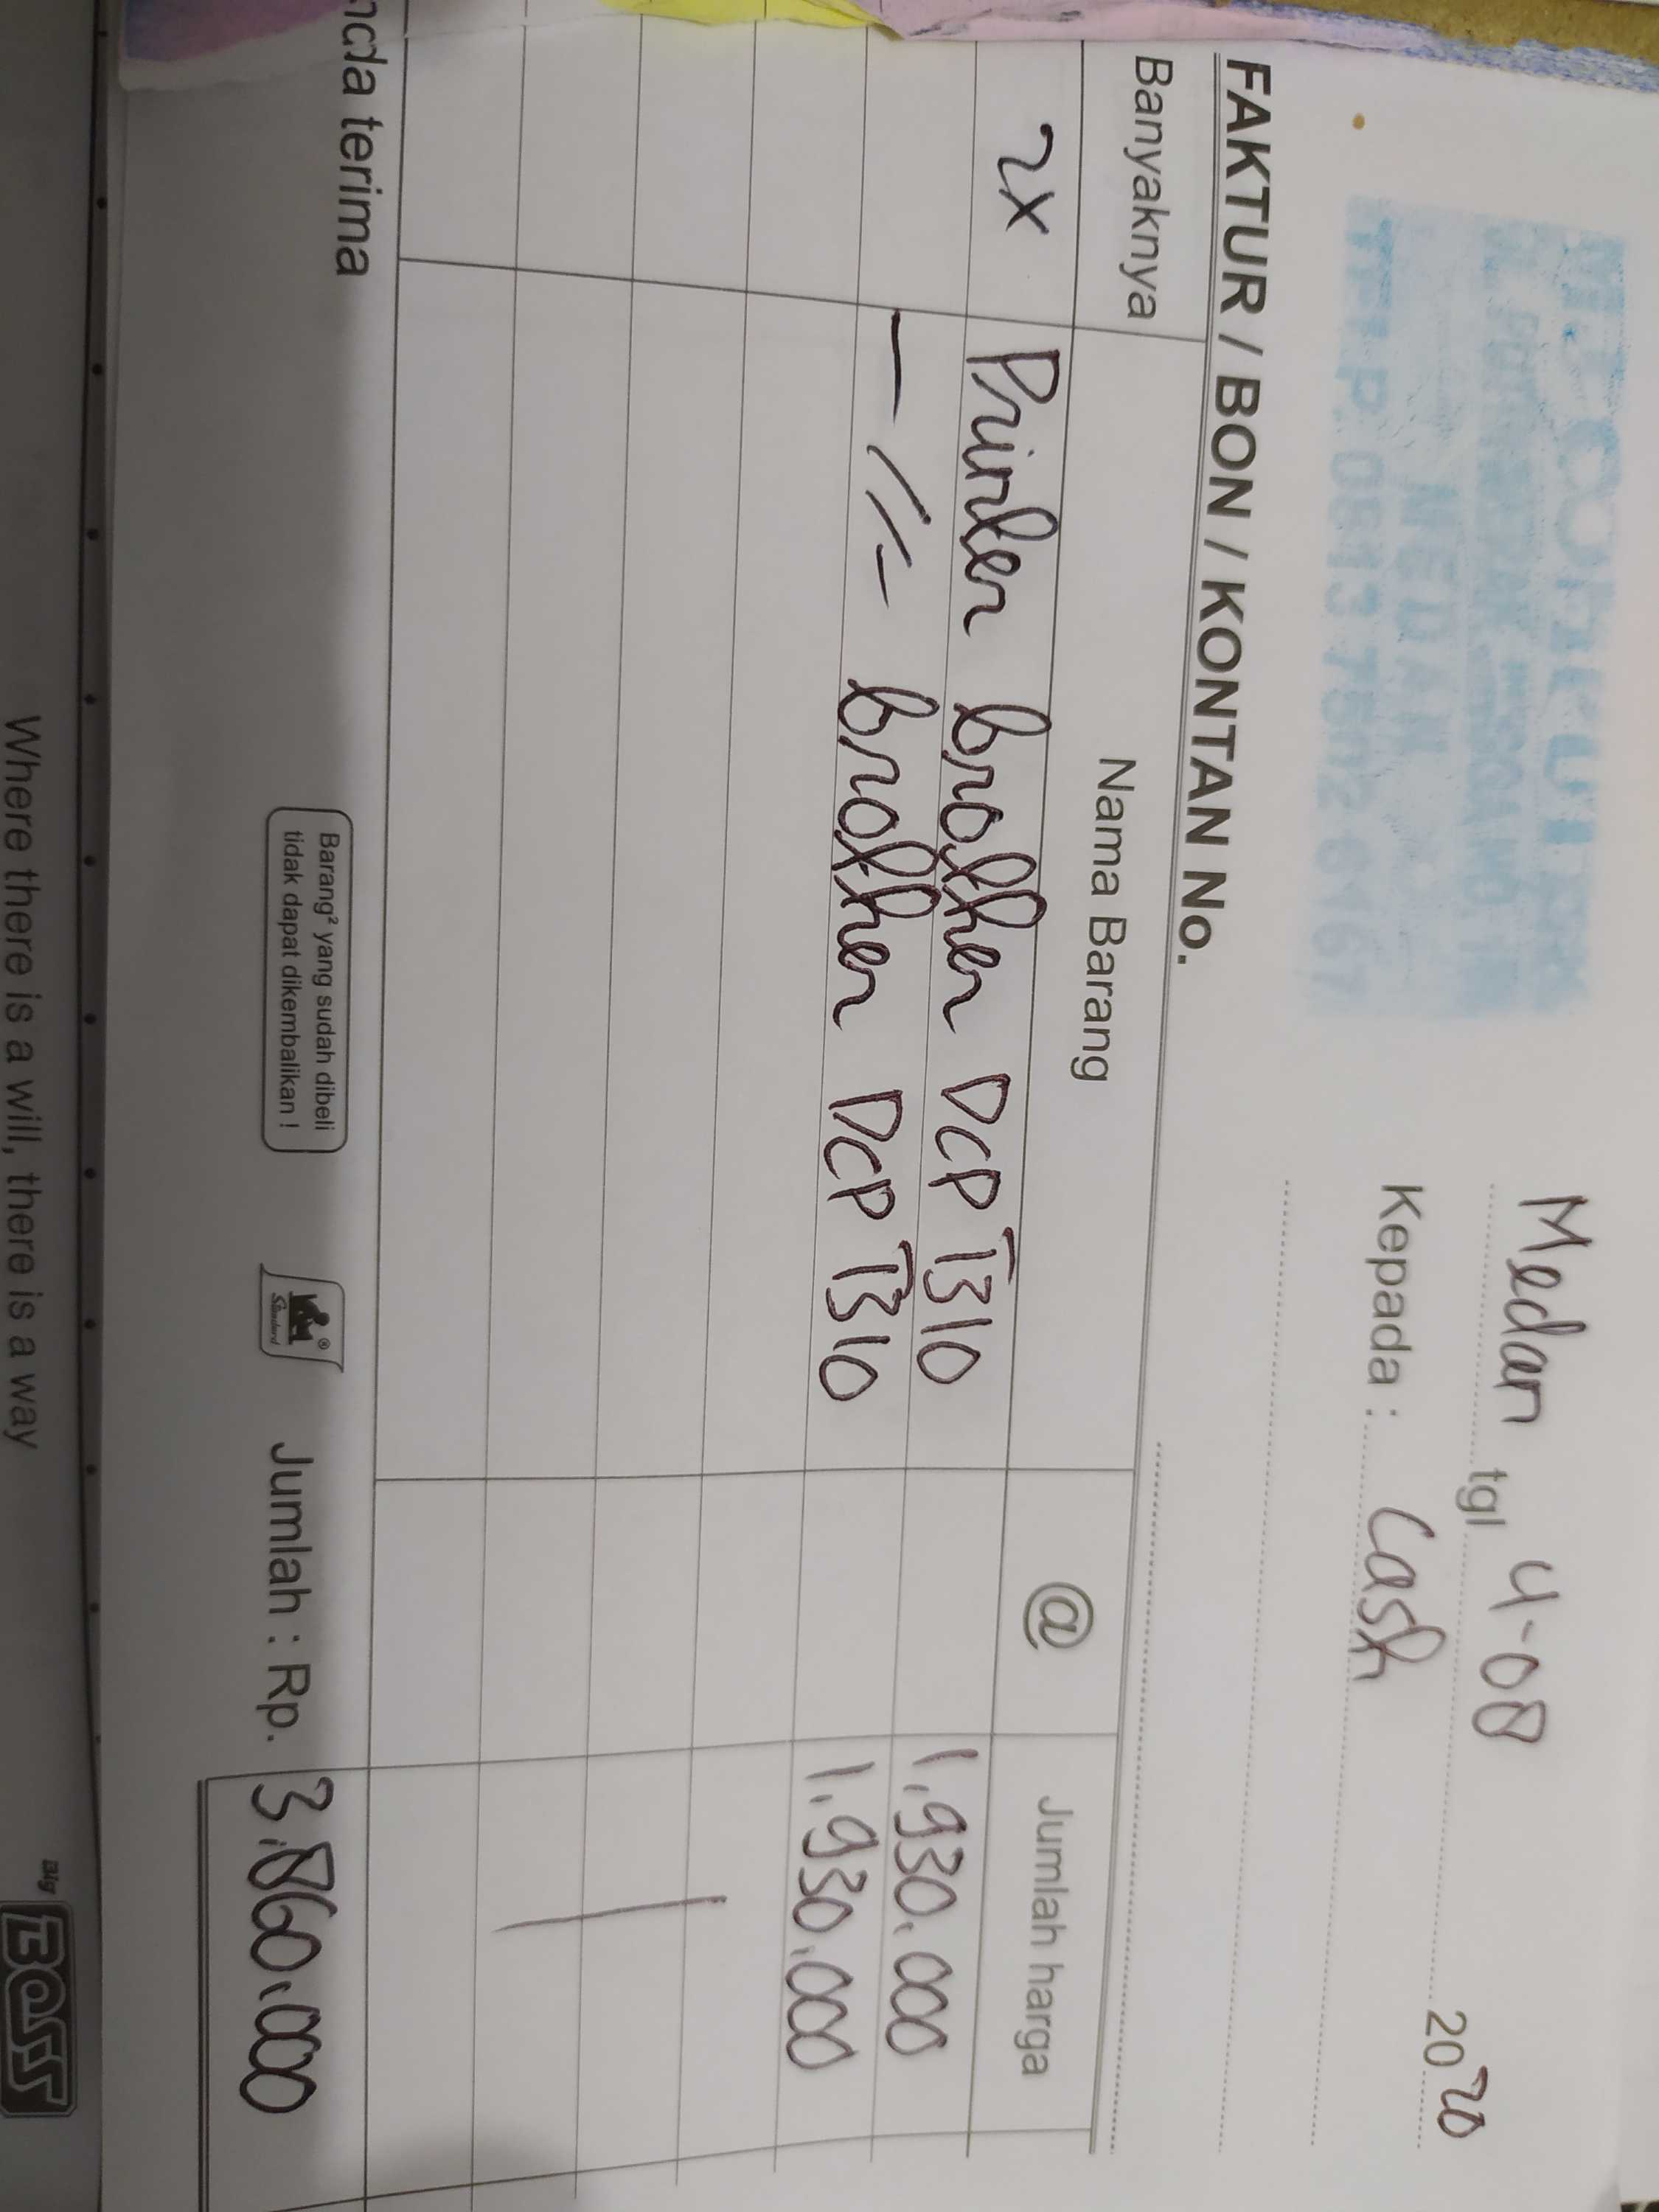 MEDAN
TELP. 0813 7502 6167
Medan tgl 4-08 2020
Kepada : Cash
FAKTUR / BON / KONTAN No.
Banyaknya Nama Barang @ Jumlah harga
2x Printer brother DCP T310 1.930.000
— // — brother DCP T310 1.930.000
nda terima
Barang² yang sudah dibeli
tidak dapat dikembalikan !
Standard
Jumlah : Rp. 3.860.000
Where there is a will, there is a way
Big BOSS